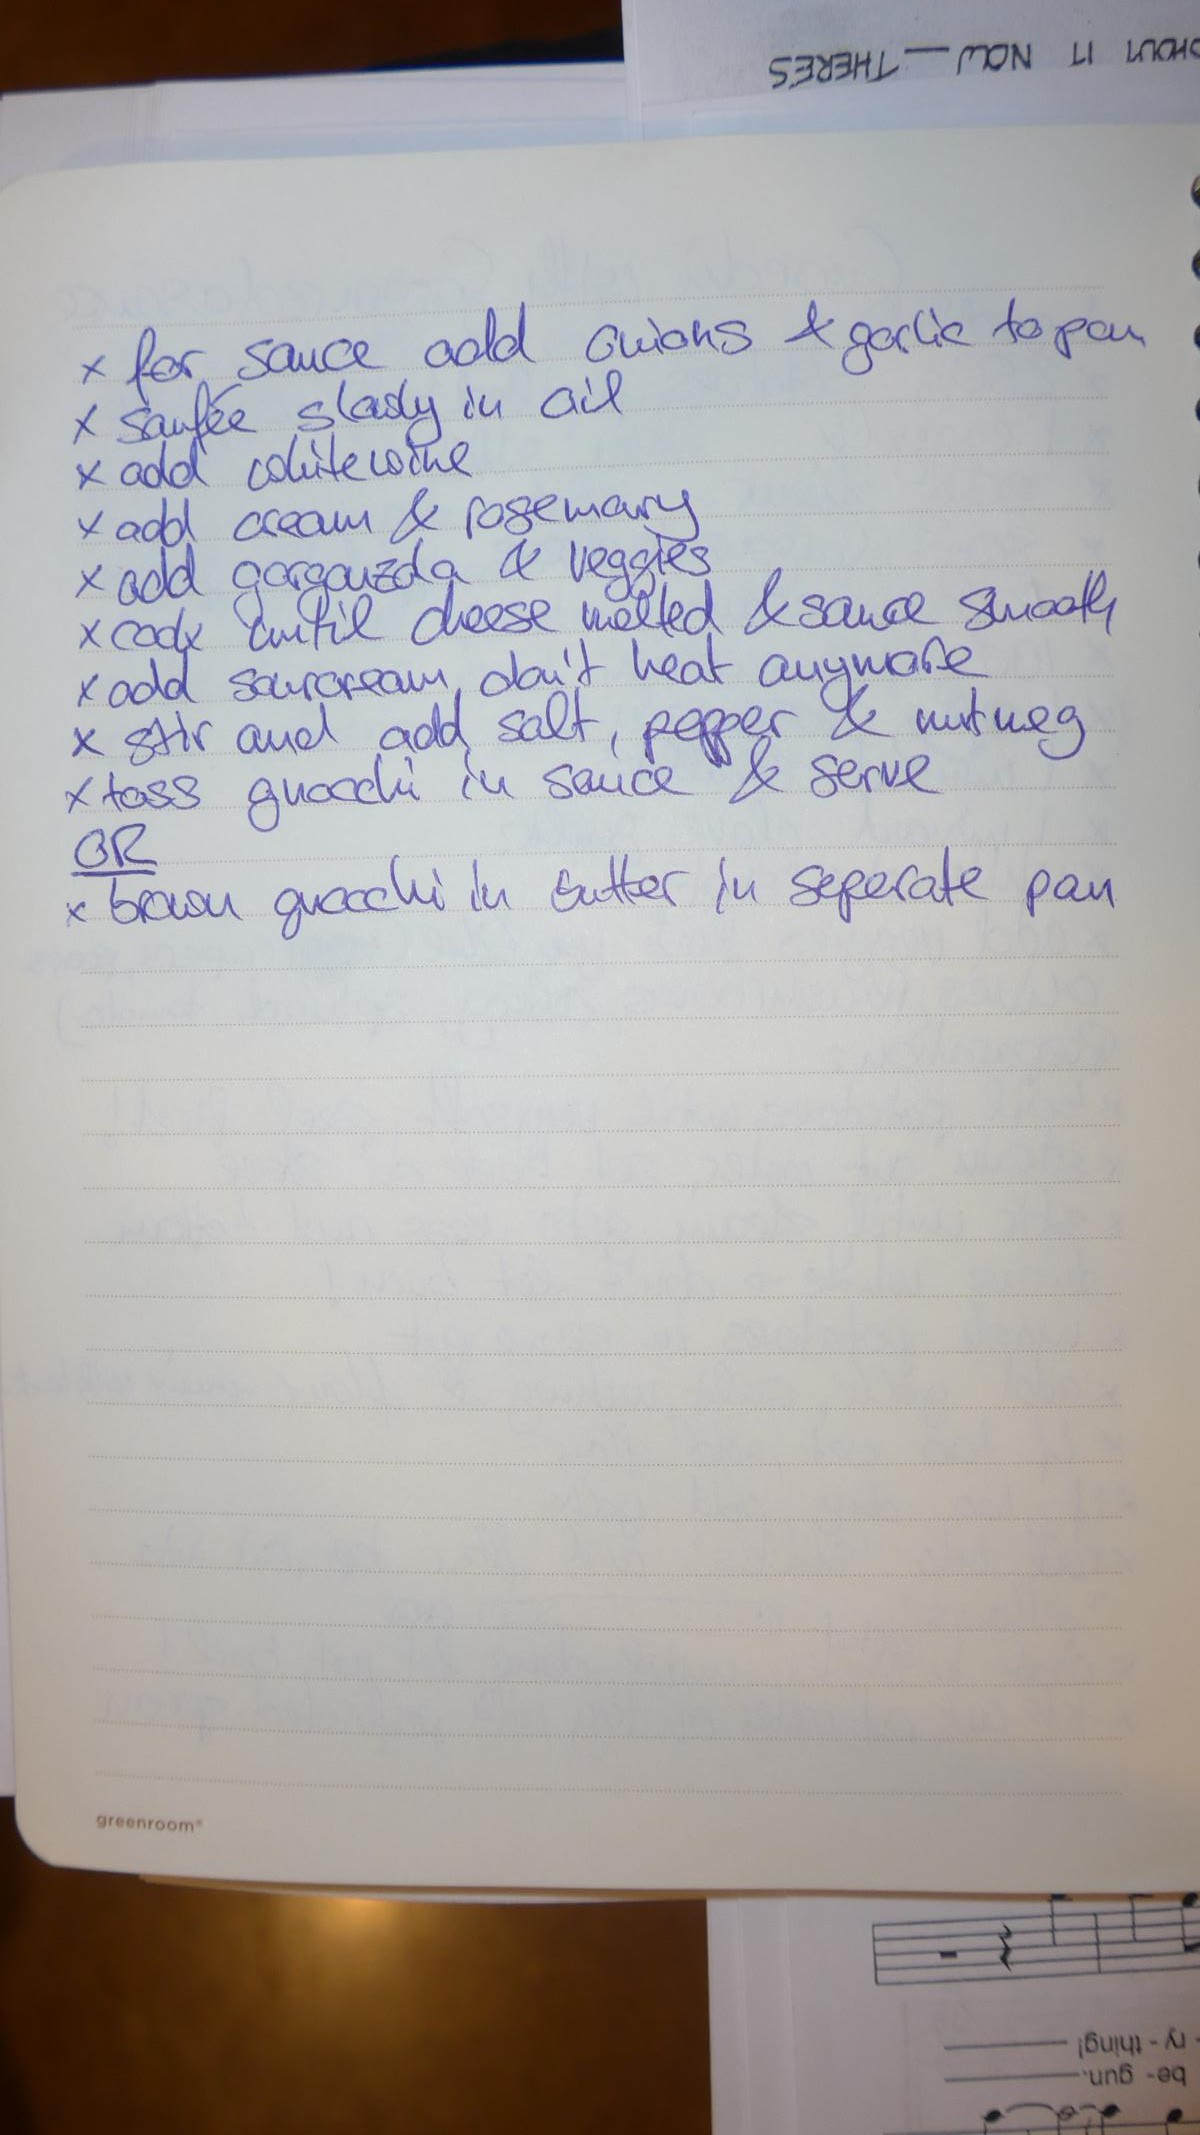 SHOUT IT NOW — THERE'S
x for sauce add onions & garlic to pan
x saufée slowly in oil
x add whitewine
x add cream & rosemary
x add gorgonzola & veggies
x cook until cheese melted & sauce smooth
x add sourcream, don't heat anymore
x stir and add salt, pepper & nutmeg
x toss gnocchi in sauce & serve
OR
x brown gnocchi in butter in seperate pan
greenroom®
- ry - thing!
be - gun.